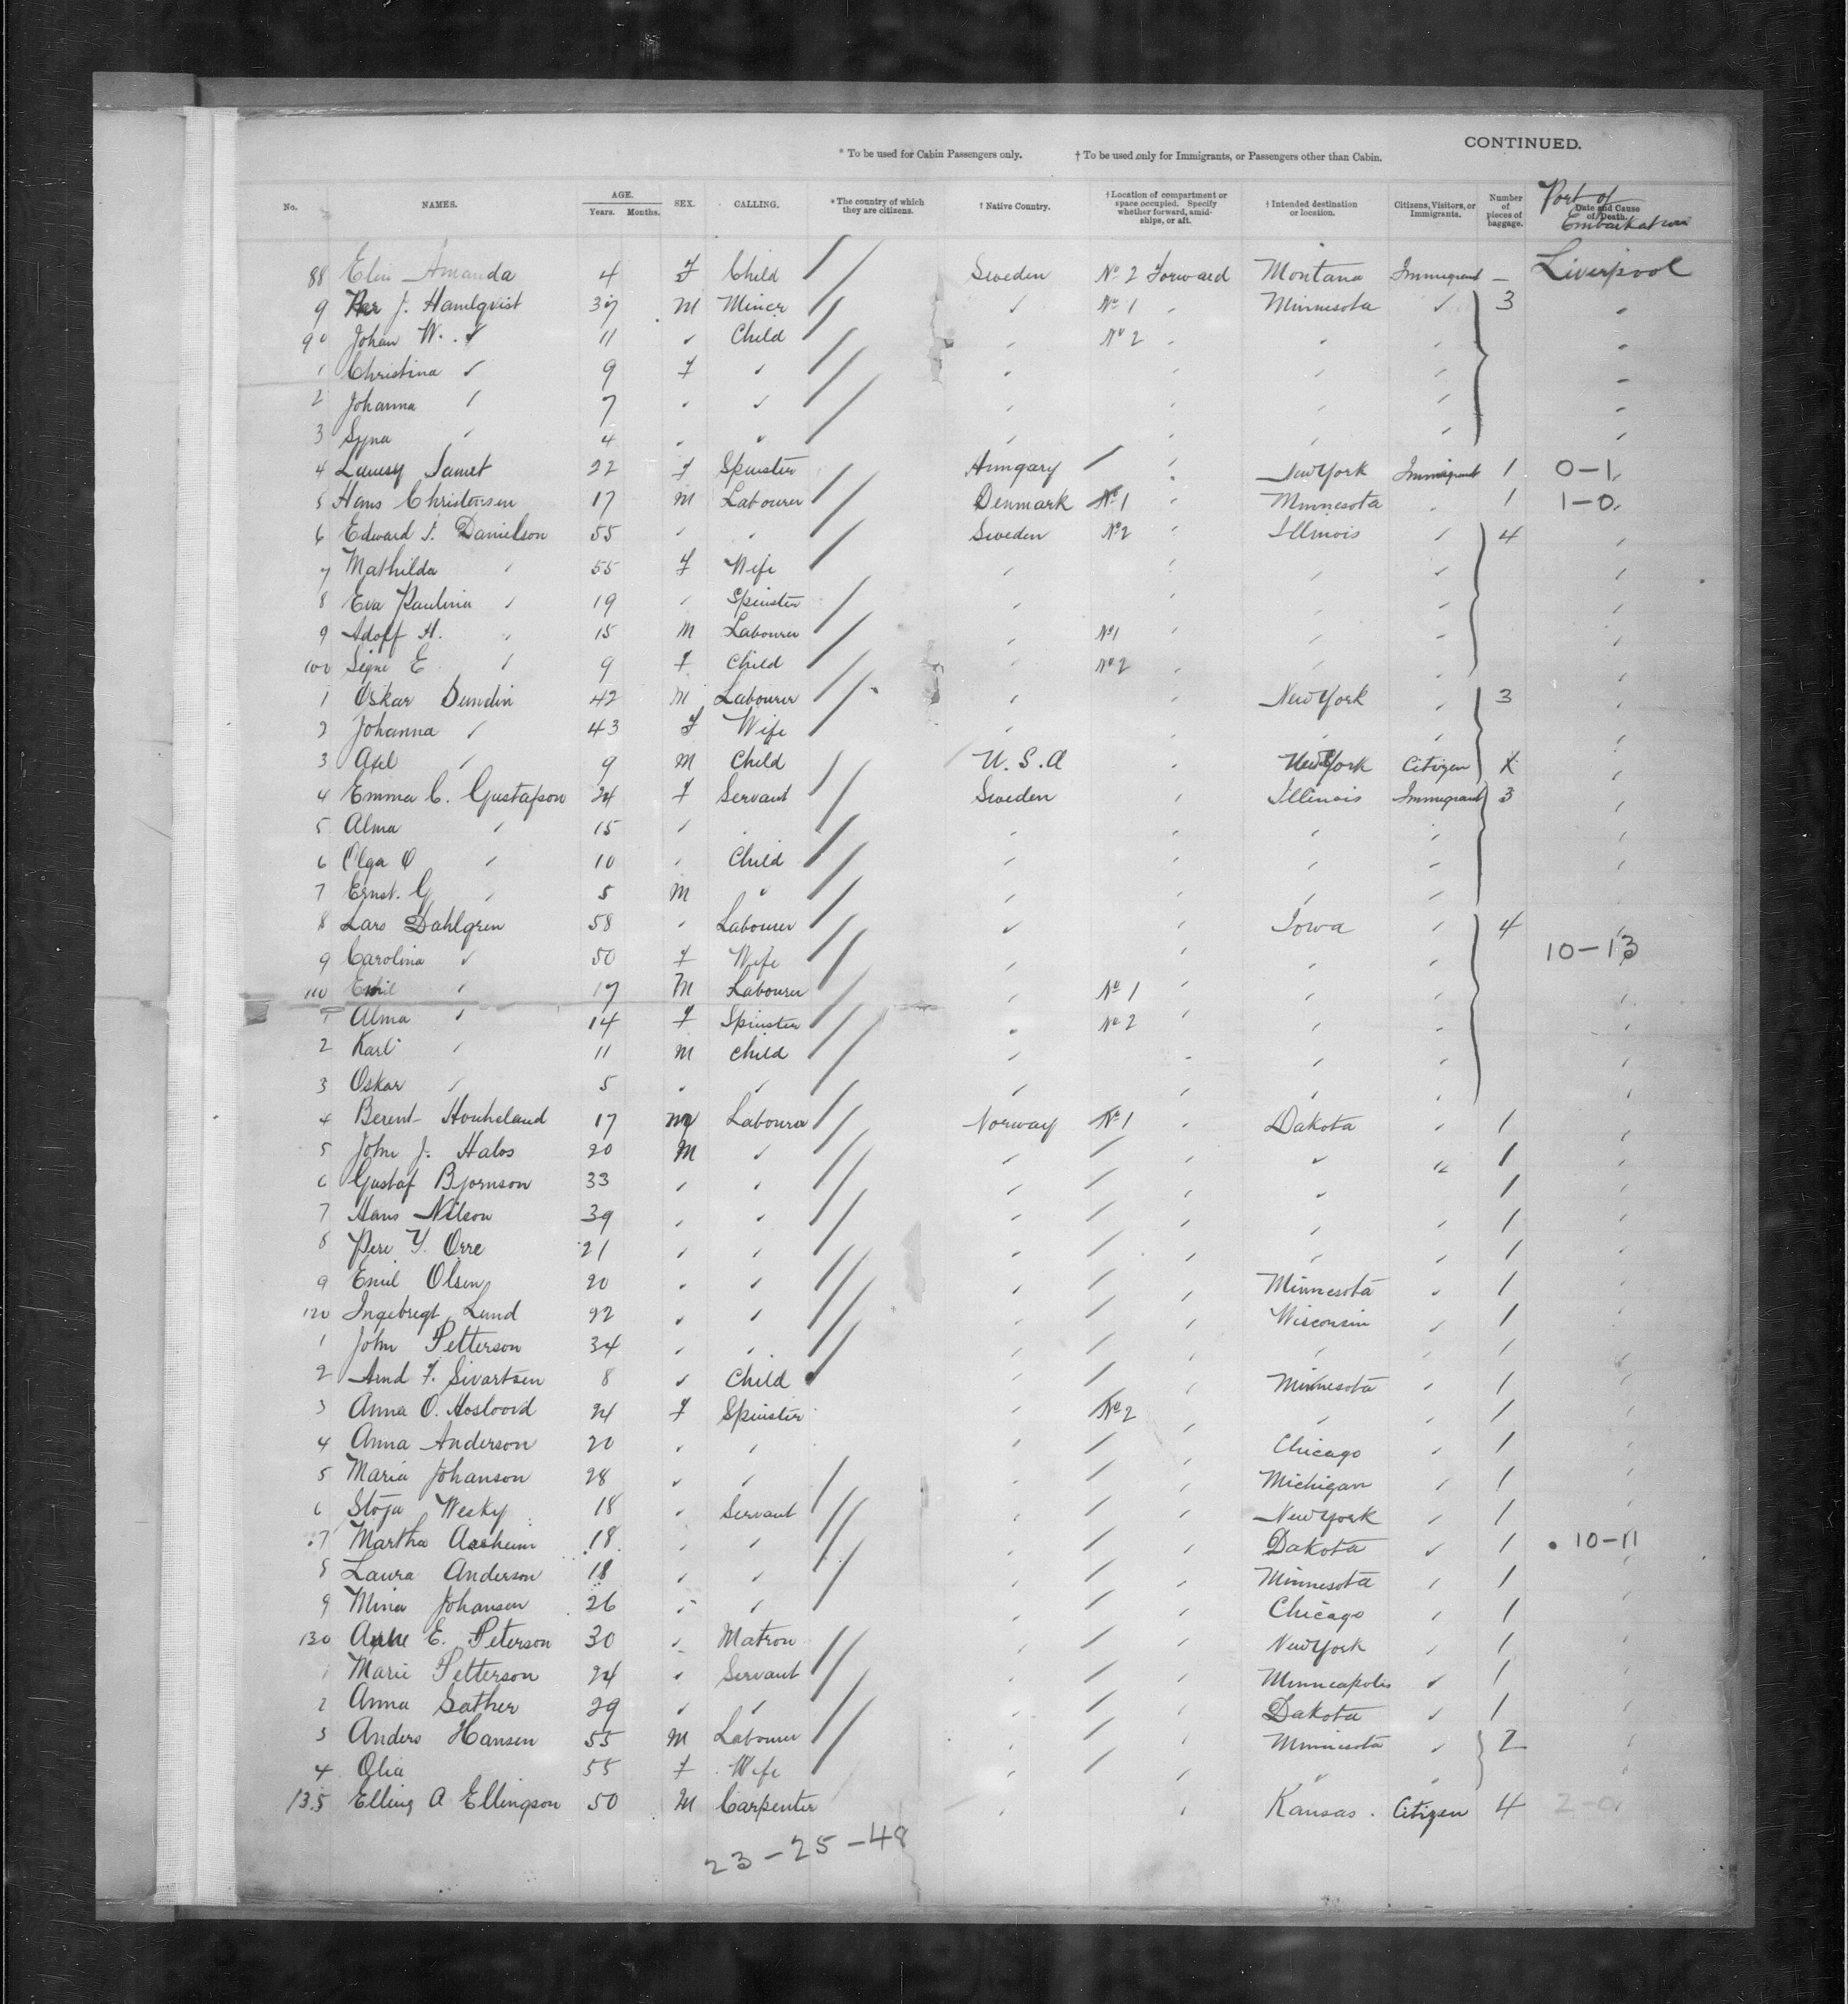 CONTINUED.
* To be used for Cabin Passengers only. † To be used only for Immigrants, or Passengers other than Cabin.
No. NAMES. AGE. Years. Months. SEX. CALLING. * The country of which they are citizens. † Native Country. † Location of compartment or space occupied. Specify whether forward, amidships, or aft. † Intended destination or location. Citizens, Visitors, or Immigrants. Number of pieces of baggage. Date and Cause of Death. Port of Embarkation
88 Elin Amanda 4 F Child Sweden No 2 Forward Montana Immigrant — Liverpool
9 Per J. Hamlqvist 37 M Miner ✓ No 1 " Minnesota ✓ 3 "
90 Johan W. ✓ 11 ✓ Child " No 2 " " " "
1 Christina ✓ 9 F ✓ " " " " "
2 Johanna " 7 " ✓ " " " " "
3 Syna " 4 " " " " " " "
4 Samet 22 F Spinster Hungary / " New York Immigrant 1 0-1
5 Hans Christensen 17 M Labourer Denmark No 1 " Minnesota " 1 1-0
6 Edward F. Danielson 55 " " Sweden No 2 " Illinois " 4 "
7 Mathilda " 55 F Wife " " " " "
8 Eva Paulina " 19 " Spinster " " " " "
9 Adolf H. " 15 M Labourer " No 1 " " " "
100 Signe E. " 9 F Child " No 2 " " " "
1 Oskar Sundin 42 M Labourer " " New York " 3 "
2 Johanna " 43 F Wife " " " " "
3 Axel " 9 M Child U.S.A " New York Citizen "
4 Emma C. Gustafson 24 F Servant Sweden " Illinois Immigrant 3 "
5 Alma " 15 " " " " " " "
6 Olga O " 10 " Child " " " " "
7 Ernst. G " 5 M " " " " " "
8 Lars Dahlgren 58 " Labourer ✓ " Iowa " 4 "
9 Carolina ✓ 50 F Wife " " " " 10-13
110 Emil " 17 M Labourer " No 1 " " " "
1 Alma " 14 F Spinster " No 2 " " " "
2 Karl " 11 M Child " " " " "
3 Oskar " 5 " " " " " " "
4 Berent 17 M Labourer Norway No 1 " Dakota " 1 "
5 John J. Halos 20 M ✓ " / " ✓ " 1 "
6 Gustaf Bjornson 33 " " " / " ✓ 1 "
7 Hans Nilson 39 " " " / " " " 1 "
8 Orre 21 " " " / " " " 1 "
9 Emil Olsen 20 " " " / " Minnesota " 1 "
120 Ingebregt Lund 22 " " " / " Wisconsin " 1 "
1 John Petterson 34 " " " / " " " 1 "
2 Arnd F. Sivartsen 8 " Child " / " Minnesota " 1 "
3 Anna O. 24 F Spinster " No 2 " " " 1 "
4 Anna Anderson 20 " " " / " Chicago " 1 "
5 Maria Johanson 28 " " " / " Michigan " 1 "
6 18 " Servant " / " New York " 1 "
7 Martha Aarheim 18 " " " / " Dakota ✓ 1 10-11
8 Laura Anderson 18 " " " / " Minnesota " 1 "
9 Mina Johansen 26 " " " / " Chicago " 1 "
130 E. Peterson 30 " Matron " / " New York " 1 "
1 Marie Petterson 24 " Servant " / " Minneapolis ✓ 1 "
2 Anna Sather 29 " " " / " Dakota ✓ 1 "
3 Anders Hansen 55 M Labourer " / " Minnesota ✓ 2 "
4 Olia 55 F Wife " / " " " "
135 Elling A Ellingson 50 M Carpenter " " Kansas. Citizen 4 2-0
23-25-48